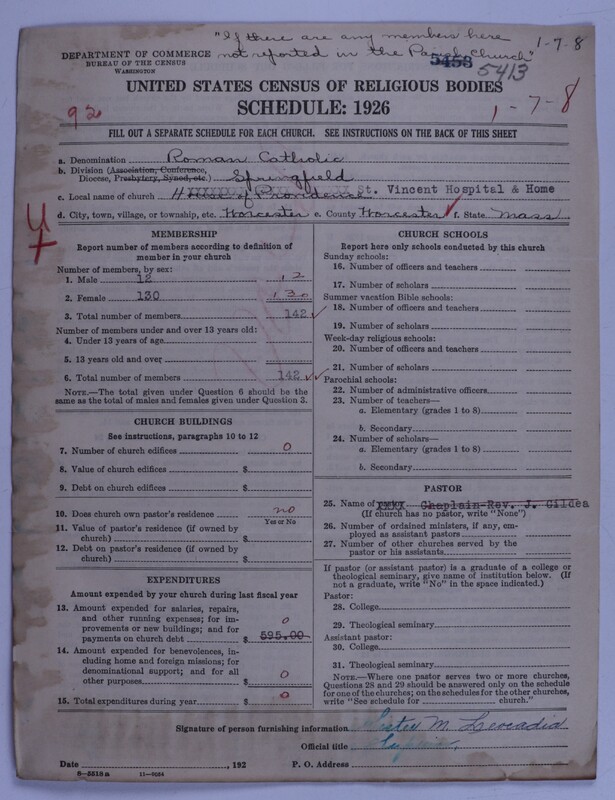 "If there are any members here
not reported in the Parish Church"
1-7-8
DEPARTMENT OF COMMERCE
BUREAU OF THE CENSUS
WASHINGTON
5453
5413
UNITED STATES CENSUS OF RELIGIOUS BODIES
SCHEDULE: 1926
92
1-7-8
FILL OUT A SEPARATE SCHEDULE FOR EACH CHURCH. SEE INSTRUCTIONS ON THE BACK OF THIS SHEET
a. Denomination Roman Catholic
b. Division (Association, Conference,
Diocese, Presbytery, Synod, etc.) Springfield
c. Local name of church House of Providence St. Vincent Hospital & Home
d. City, town, village, or township, etc. Worcester e. County Worcester f. State Mass
MEMBERSHIP
Report number of members according to definition of
member in your church
Number of members, by sex:
1. Male 12 12
2. Female 130 130
3. Total number of members 142
Number of members under and over 13 years old:
4. Under 13 years of age
5. 13 years old and over
6. Total number of members 142
NOTE.—The total given under Question 6 should be the
same as the total of males and females given under Question 3.
CHURCH BUILDINGS
See instructions, paragraphs 10 to 12
7. Number of church edifices 0
8. Value of church edifices $
9. Debt on church edifices $
10. Does church own pastor's residence no
Yes or No
11. Value of pastor's residence (if owned by
church) $
12. Debt on pastor's residence (if owned by
church) $
EXPENDITURES
Amount expended by your church during last fiscal year
13. Amount expended for salaries, repairs,
and other running expenses; for im-
provements or new buildings; and for
payments on church debt $ 595.00 0
14. Amount expended for benevolences, in-
cluding home and foreign missions; for
denominational support; and for all
other purposes $ 0
15. Total expenditures during year $ 0
CHURCH SCHOOLS
Report here only schools conducted by this church
Sunday schools:
16. Number of officers and teachers
17. Number of scholars
Summer vacation Bible schools:
18. Number of officers and teachers
19. Number of scholars
Week-day religious schools:
20. Number of officers and teachers
21. Number of scholars
Parochial schools:
22. Number of administrative officers
23. Number of teachers—
a. Elementary (grades 1 to 8)
b. Secondary
24. Number of scholars—
a. Elementary (grades 1 to 8)
b. Secondary
PASTOR
25. Name of Chaplain-Rev. J. Gildea
(If church has no pastor, write "None")
26. Number of ordained ministers, if any, em-
ployed as assistant pastors
27. Number of other churches served by the
pastor or his assistants
If pastor (or assistant pastor) is a graduate of a college or
theological seminary, give name of institution below. (If
not a graduate, write "No" in the space indicated.)
Pastor:
28. College
29. Theological seminary
Assistant pastor:
30. College
31. Theological seminary
NOTE.—Where one pastor serves two or more churches,
Questions 28 and 29 should be answered only on the schedule
for one of the churches; on the schedules for the other churches,
write "See schedule for church."
Signature of person furnishing information Sister M. Leocadia
Official title
Date , 192 P. O. Address
8-5518a 11-9584